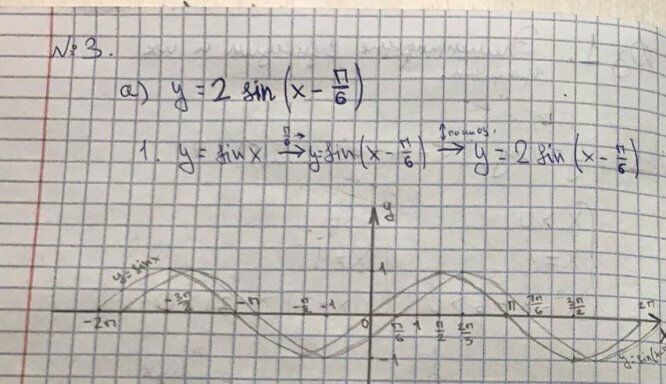 № 3.
а) y = 2 sin (x - π/6)
1. y = sin x π/6 → y = sin (x - π/6) → y = 2 sin (x - π/6)
y
y = sin x
1
-2π -3π/2 -π -π/2 -1 0 π/6 1 π/2 2π/3 π 7π/6 3π/2 2π x
-1